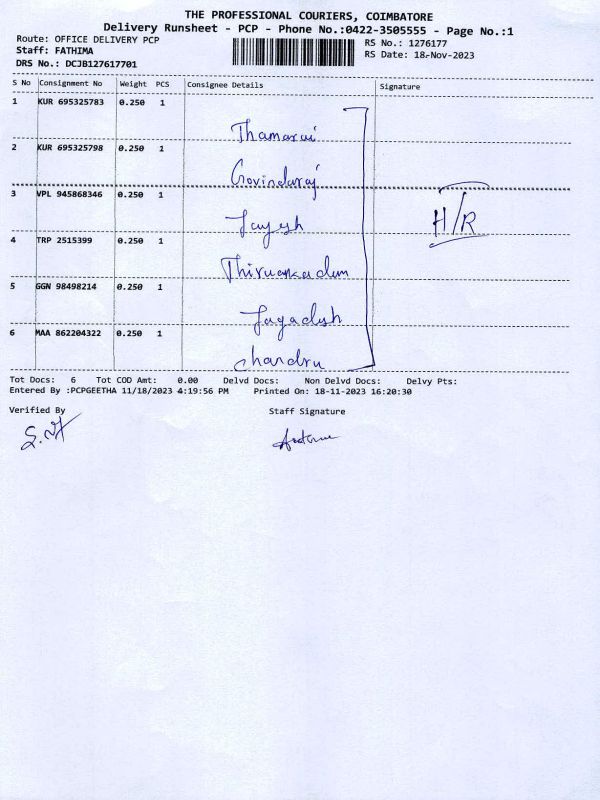 THE PROFESSIONAL COURIERS, COIMBATORE
Delivery Runsheet - PCP - Phone No.:0422-3505555 - Page No.:1
Route: OFFICE DELIVERY PCP
RS No.: 1276177
Staff: FATHIMA
RS Date: 18-Nov-2023
DRS No.: DCJB127617701
S No Consignment No Weight PCS Consignee Details Signature
1 KUR 695325783 0.250 1
Thamarai
2 KUR 695325798 0.250 1
Govindaraj
3 VPL 945868346 0.250 1
Jayesh
H/R
4 TRP 2515399 0.250 1
Thiruvenkadum
5 GGN 98498214 0.250 1
Jagadish
6 MAA 862204322 0.250 1
chandru
Tot Docs: 6 Tot COD Amt: 0.00 Delvd Docs: Non Delvd Docs: Delvy Pts:
Entered By :PCPGEETHA 11/18/2023 4:19:56 PM Printed On: 18-11-2023 16:20:30
Verified By Staff Signature